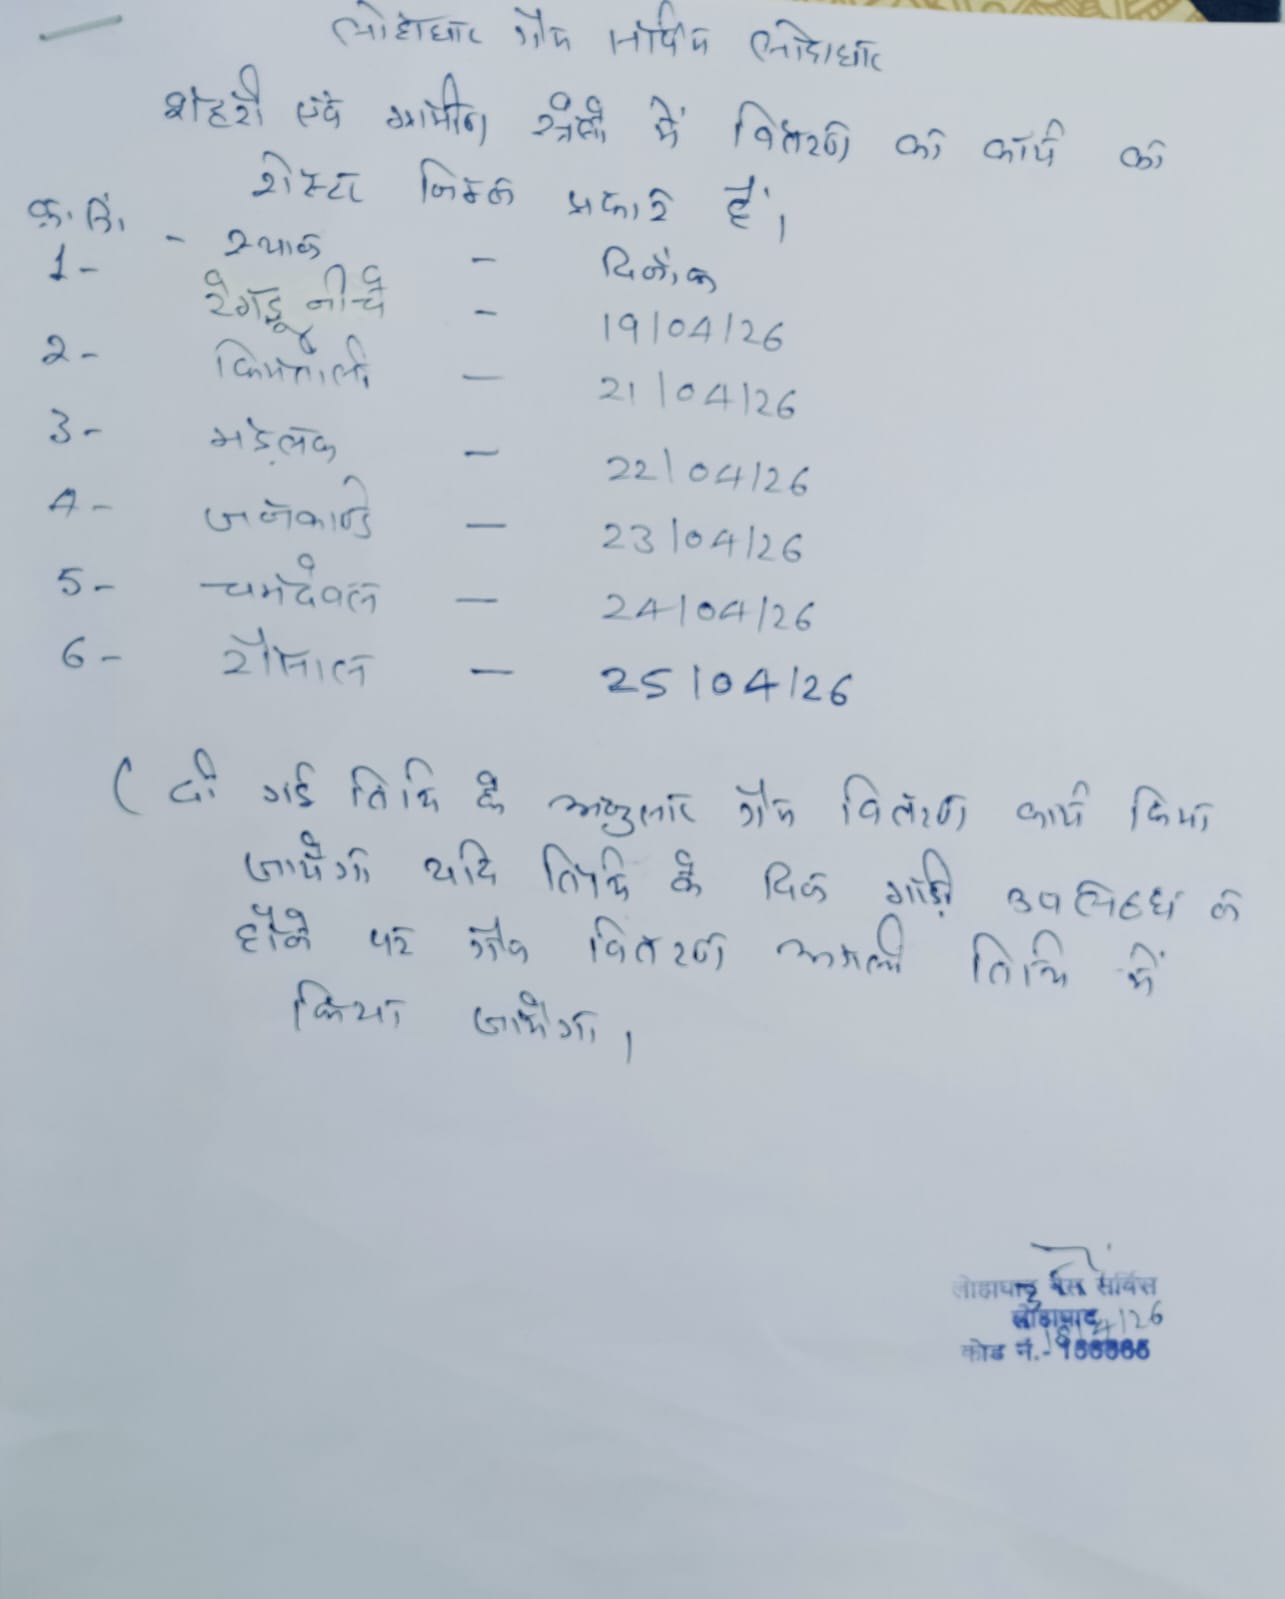 लोहाघाट गैस सर्विस लोहाघाट
शहरी एवं ग्रामीण क्षेत्रों में वितरण का कार्य का
रोस्टर निम्न प्रकार है।
क्र.सं. - स्थान - दिनांक
1- नीचे - 19/04/26
2- किमतोली - 21/04/26
3- मडलक - 22/04/26
4- जनकाण्डे - 23/04/26
5- चमदेवल - 24/04/26
6- रौसाल - 25/04/26
( दी गई तिथि के अनुसार गैस वितरण कार्य किया
जायेगा यदि तिथि के दिन गाड़ी उपलब्ध न
होने पर गैस वितरण अगली तिथि में
किया जायेगा।
लोहाघाट गैस सर्विस
लोहाघाट
कोड नं.-